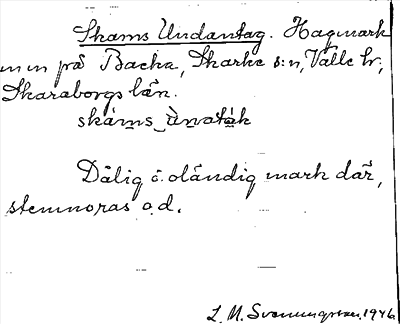 Skams Undantag. Hagmark
m m på Backa, Skarke s:n, Valle hr,
Skaraborgs län.
skáms_ ùnatàk
Dålig o. oländig mark där,
stemnoras o.d.
L. M. Svenungsson. 1946.